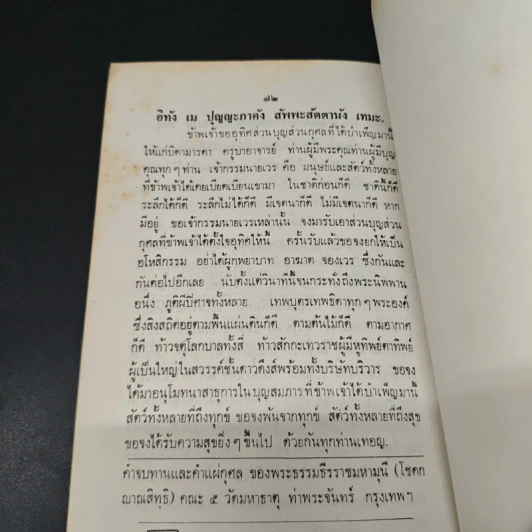 ๗๒
อิทัง เม ปุญญะภาคัง สัพพะสัตตานัง เทมะ.
ข้าพเจ้าขออุทิศส่วนบุญส่วนกุศลที่ได้บำเพ็ญมานี้
ให้แก่บิดามารดา ครูบาอาจารย์ ท่านผู้มีพระคุณท่านผู้มีบุญ
คุณทุกๆท่าน เจ้ากรรมนายเวร คือ มนุษย์และสัตว์ทั้งหลาย
ที่ข้าพเจ้าได้เคยเบียดเบียนเขามา ในชาติก่อนก็ดี ชาตินี้ก็ดี
ระลึกได้ก็ดี ระลึกไม่ได้ก็ดี มีเจตนาก็ดี ไม่มีเจตนาก็ดี หาก
มีอยู่ ขอเจ้ากรรมนายเวรเหล่านั้น จงมารับเอาส่วนบุญส่วน
กุศลที่ข้าพเจ้าได้ตั้งใจอุทิศให้นี้ ครั้นรับแล้วขอจงยกให้เป็น
อโหสิกรรม อย่าได้ผูกพยาบาท อาฆาต จองเวร ซึ่งกันและ
กันต่อไปอีกเลย นับตั้งแต่วินาทีนี้จนกระทั่งถึงพระนิพพาน
อนึ่ง ภูติผีปีศาจทั้งหลาย เทพบุตรเทพธิดาทุกๆพระองค์
ซึ่งสิงสถิตอยู่ตามพื้นแผ่นดินก็ดี ตามต้นไม้ก็ดี ตามอากาศ
ก็ดี ท้าวจตุโลกบาลทั้งสี่ ท้าวสักกะเทวราชผู้มีหูทิพย์ตาทิพย์
ผู้เป็นใหญ่ในสวรรค์ชั้นดาวดึงส์พร้อมทั้งบริษัทบริวาร ขอจง
ได้มาอนุโมทนาสาธุการในบุญสมภารที่ข้าพเจ้าได้บำเพ็ญมานี้
สัตว์ทั้งหลายที่ถึงทุกข์ ขอจงพ้นจากทุกข์ สัตว์ทั้งหลายที่ถึงสุข
ขอจงได้รับความสุขยิ่งๆขึ้นไป ด้วยกันทุกท่านเทอญ.
คำจบทานและคำแผ่กุศล ของพระธรรมธีรราชมหามุนี (โชดก
ญาณสิทฺธิ) คณะ ๕ วัดมหาธาตุ ท่าพระจันทร์ กรุงเทพฯ